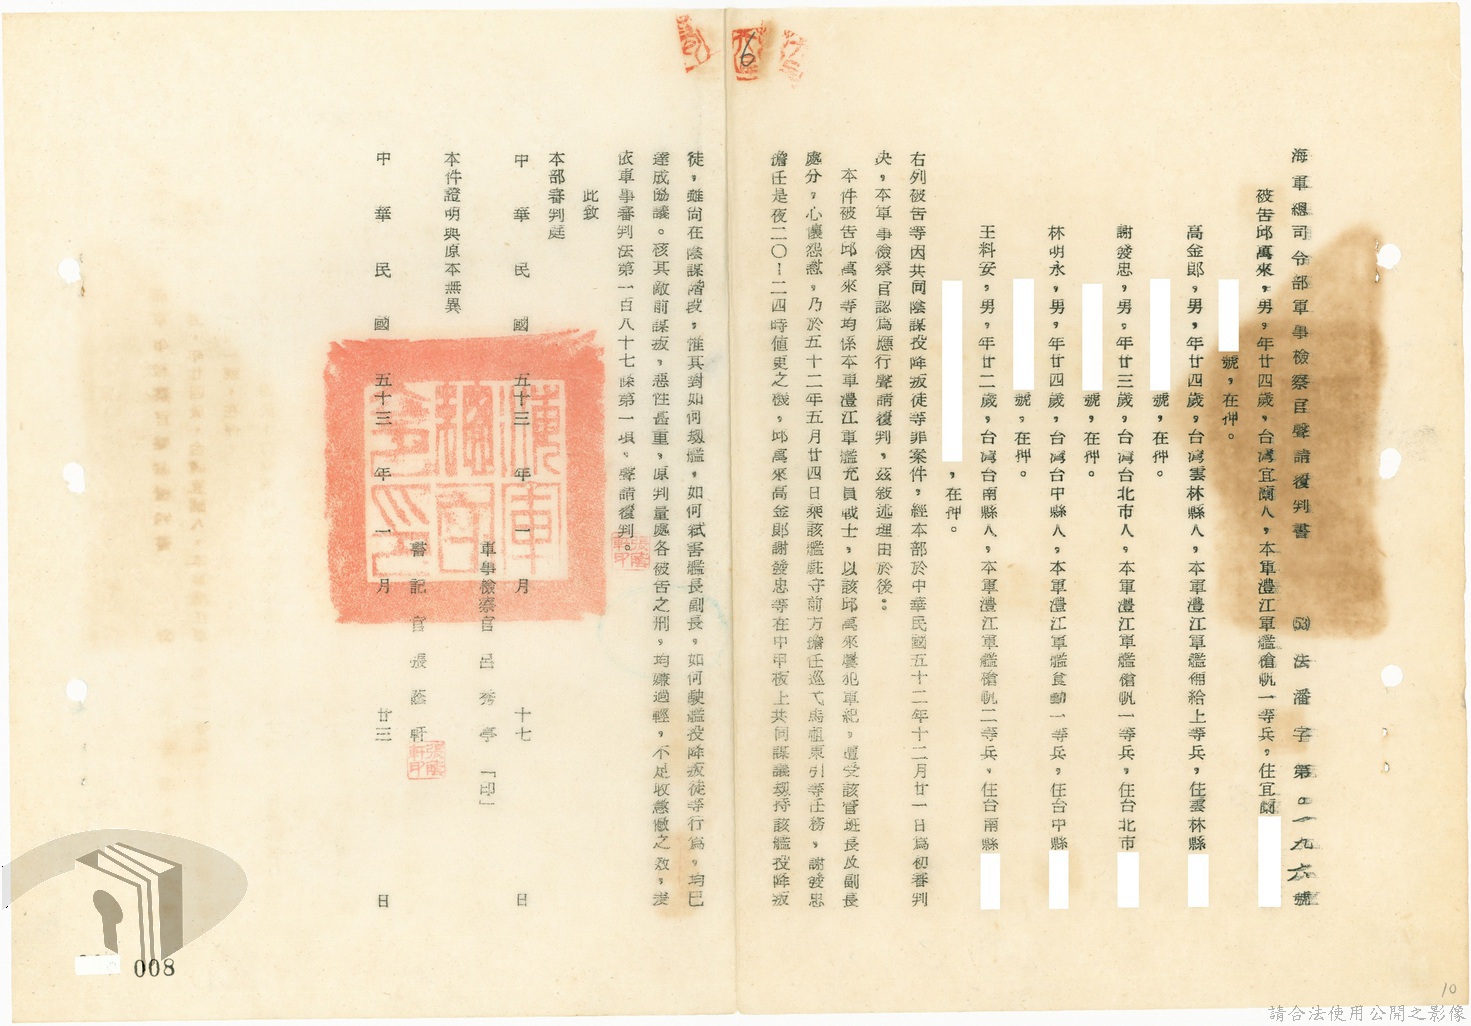 海軍總司令部軍事檢察官聲請覆判書 (53)法潘字第〇一九六號
被告邱萬來，男，年廿四歲，台灣宜蘭人，本軍澧江軍艦槍帆一等兵，住宜蘭
號，在押。
高金郎，男，年廿四歲，台灣雲林縣人，本軍澧江軍艦補給上等兵，住雲林縣
號，在押。
謝發忠，男，年廿三歲，台灣台北市人，本軍澧江軍艦槍帆一等兵，住台北市
號，在押。
林明永，男，年廿四歲，台灣台中縣人，本軍澧江軍艦食勤一等兵，住台中縣
號，在押。
王料安，男，年廿二歲，台灣台南縣人，本軍澧江軍艦槍帆二等兵，住台南縣
，在押。
右列被告等因共同陰謀投降叛徒等罪案件，經本部於中華民國五十二年十二月廿一日為初審判
決，本軍事檢察官認為應行聲請覆判，茲敘述理由於後：
本件被告邱萬來等均係本軍澧江軍艦充員戰士，以該邱萬來屢犯軍紀，遭受該管班長及副長
處分，心懷怨懟，乃於五十二年五月廿四日乘該艦駐守前方擔任巡弋烏坵東引等任務，謝發忠
擔任是夜二〇—二四時值更之機，邱萬來高金郎謝發忠等在中甲板上共同謀議劫持該艦投降叛
徒，雖尚在陰謀階段，惟其對如何劫艦，如何弒害艦長副長，如何駛艦投降叛徒等行為，均已
達成協議。核其敵前謀叛，惡性甚重，原判量處各被告之刑，均嫌過輕，不足收懲儆之效，爰
依軍事審判法第一百八十七條第一項，聲請覆判。
此致
本部審判庭
中華民國五十三年一月十七日
軍事檢察官呂秀亭「印」
本件證明與原本無異
書記官張蔭軒
中華民國五十三年一月廿三日
海軍總司令部印
張蔭軒印
張蔭軒印
6
008
10
請合法使用公開之影像